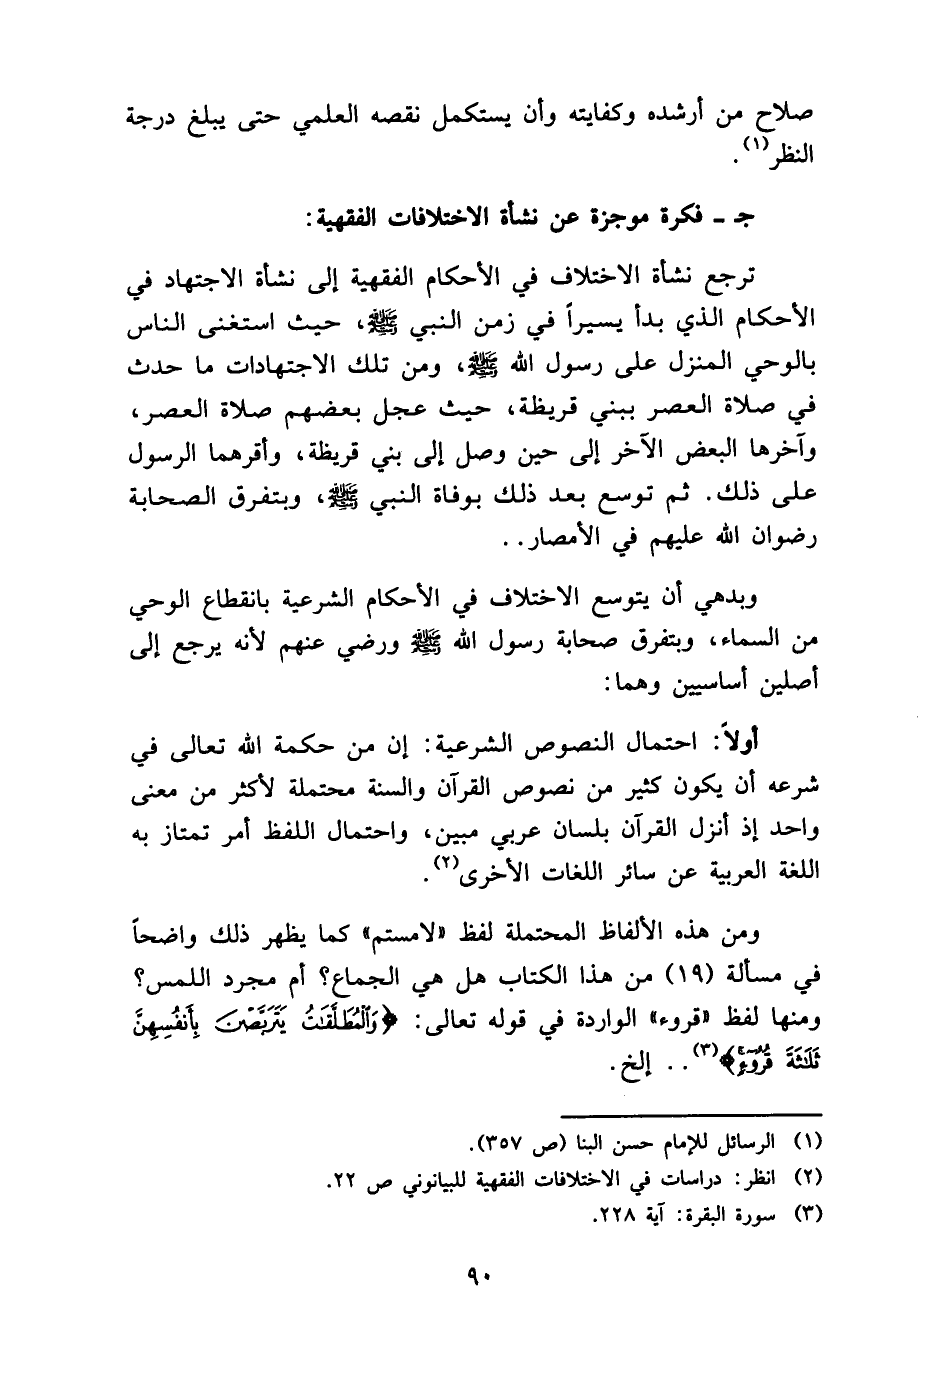 صلاح من أرشده وكفايته وأن يستكمل نقصه العلمي حتى يبلغ درجة
النظر(١).
جـ ـ فكرة موجزة عن نشأة الاختلافات الفقهية:
ترجع نشأة الاختلاف في الأحكام الفقهية إلى نشأة الاجتهاد في
الأحكام الذي بدأ يسيراً في زمن النبي ﷺ، حيث استغنى الناس
بالوحي المنزل على رسول الله ﷺ، ومن تلك الاجتهادات ما حدث
في صلاة العصر ببني قريظة، حيث عجل بعضهم صلاة العصر،
وآخرها البعض الآخر إلى حين وصل إلى بني قريظة، وأقرهما الرسول
على ذلك. ثم توسع بعد ذلك بوفاة النبي ﷺ، وبتفرق الصحابة
رضوان الله عليهم في الأمصار..
وبدهي أن يتوسع الاختلاف في الأحكام الشرعية بانقطاع الوحي
من السماء، وبتفرق صحابة رسول الله ﷺ ورضي عنهم لأنه يرجع إلى
أصلين أساسيين وهما:
أولاً: احتمال النصوص الشرعية: إن من حكمة الله تعالى في
شرعه أن يكون كثير من نصوص القرآن والسنة محتملة لأكثر من معنى
واحد إذ أنزل القرآن بلسان عربي مبين، واحتمال اللفظ أمر تمتاز به
اللغة العربية عن سائر اللغات الأخرى(٢).
ومن هذه الألفاظ المحتملة لفظ «لامستم» كما يظهر ذلك واضحاً
في مسألة (١٩) من هذا الكتاب هل هي الجماع؟ أم مجرد اللمس؟
ومنها لفظ «قروء» الواردة في قوله تعالى: ﴿وَٱلْمُطَلَّقَٰتُ يَتَرَبَّصْنَ بِأَنفُسِهِنَّ
ثَلَٰثَةَ قُرُوٓءٍ﴾(٣).. إلخ.
(١) الرسائل للإمام حسن البنا (ص ٣٥٧).
(٢) انظر: دراسات في الاختلافات الفقهية للبيانوني ص ٢٢.
(٣) سورة البقرة: آية ٢٢٨.
٩٠